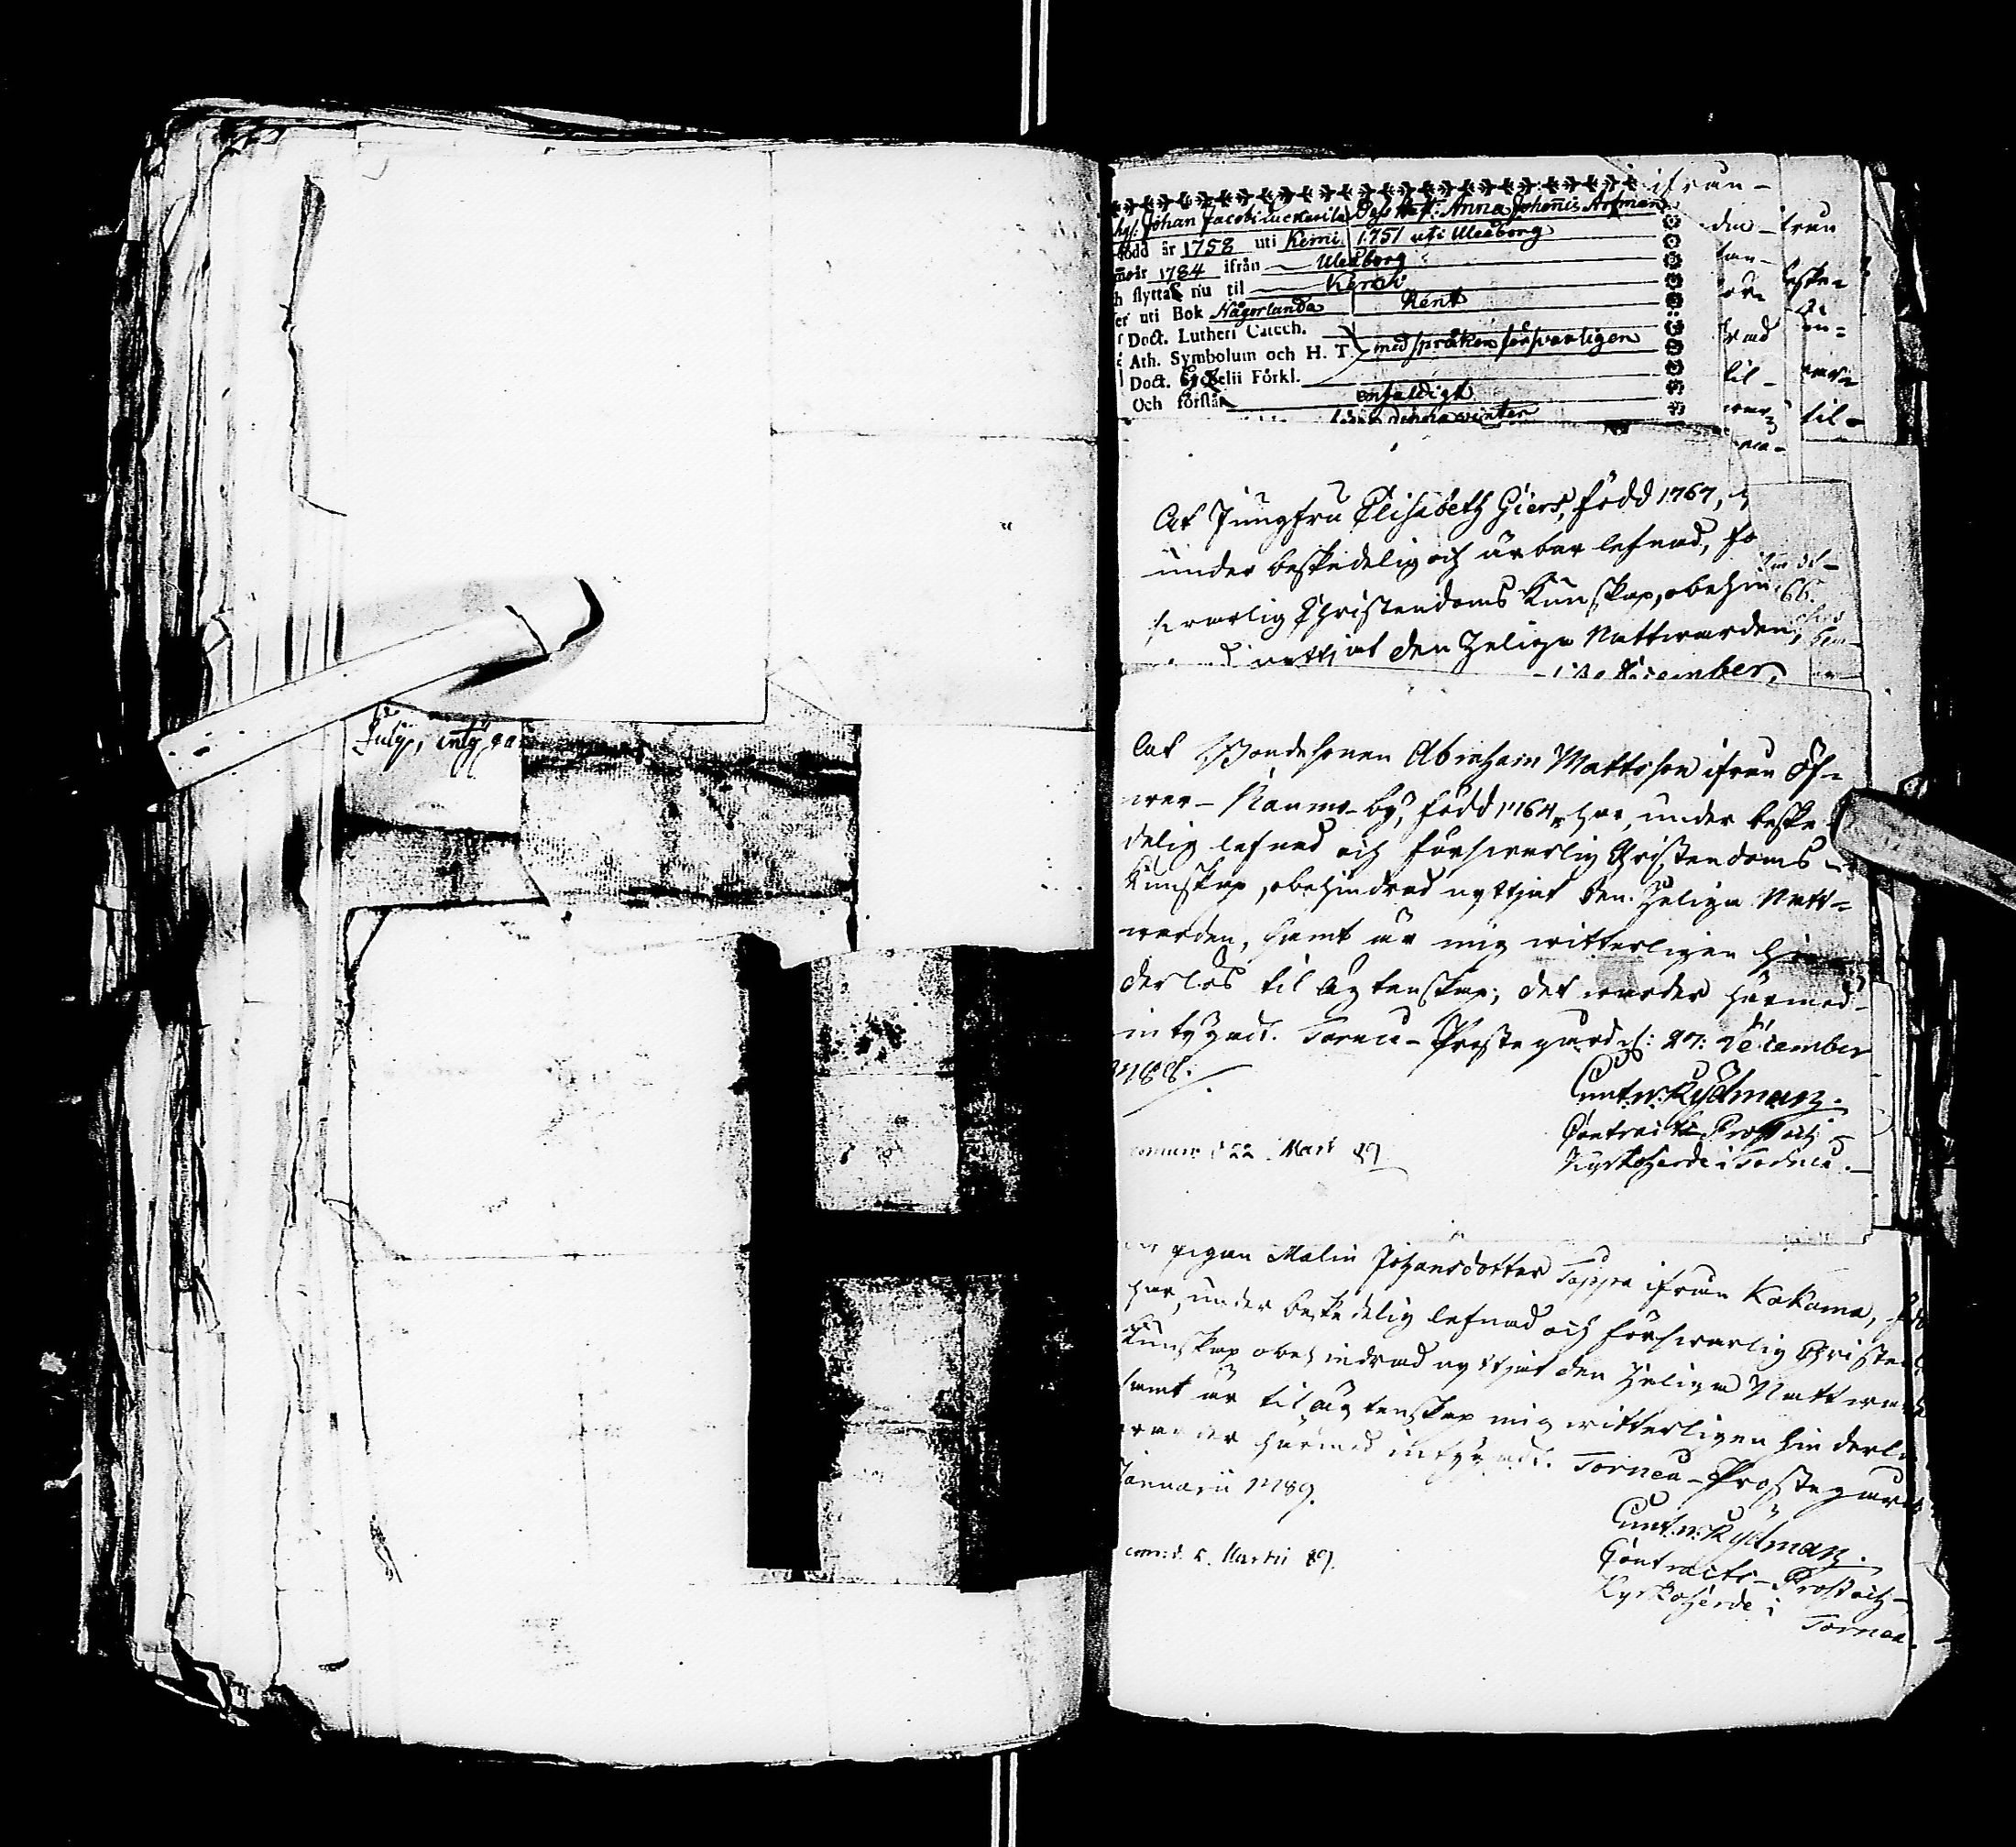 July, intÿgar
ifrån-
hsl: Johan Jacobi Dess Hust: Anna Johannis Artman
född år 1758 uti Kemi 1751 uti Uleåborg
år 1784 ifrån Uleåborg
h flyttar nu til Kemi
er uti Bok Någorlunda Rent
Doct. Lutheri Catech.
Ath. Symbolum och H. T. med språken försvarligen
Doct. Förkl.
Och förstår enfaldigt
denna winter
den- från
til-
til-
At Jungfru Elisabeth Giers, född 1767,
under beskedelig och ärbar lefnad, fö
swarlig Christendoms Kunskap, obehin
nyttjat den Helige Nattwarden,
December,
At Bondesonen Abraham Mattsson ifrån Öf-
wer-Raumo-by, född 1764, har, under beske-
delig lefnad och försvarlig Christendoms-
Kunskap, obehindrad nyttjat den Helige Natt-
warden, samt är mig witterligen hin-
derlös til Ägtenskap; det warder härmed
intÿgadt. Torneå-Prostegård d: 27: December
1788.
Contracts-Prost och
Kyrkoherde i Torneå.
22 Mart 89
pigan Malin Johansdotter Tappa ifrån Kokama,
har, under beskedelig lefnad och försvarlig Christen
Kunskap obehindrad nyttjat den Helige Nattward
samt är til ägtenskap mig witterligen hinderlö
warder härmed intÿgadt. Torneå-Prostegård
Januarii 1789.
Contracts-Prost och
Kyrkoherde i
Torneå.
Martii 89.